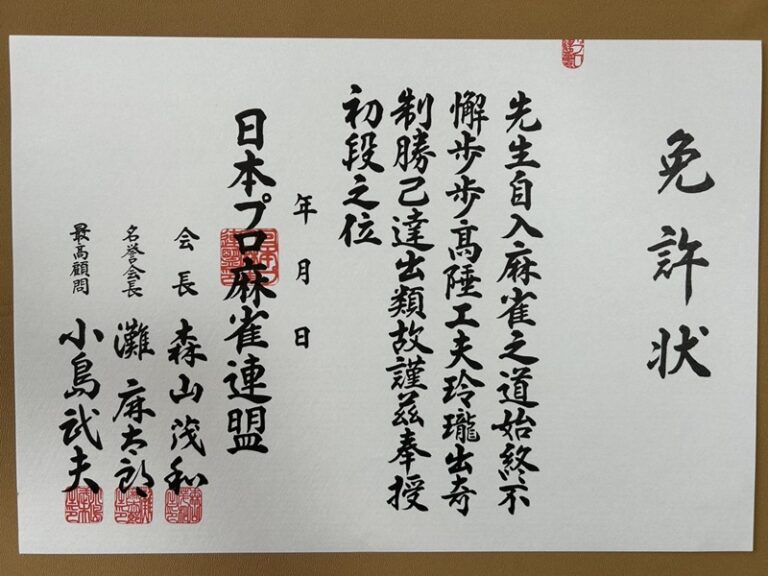 免許状
先生自入麻雀之道始終不
懈歩歩高陞工夫玲瓏出奇
制勝己達出類故謹茲奉授
初段之位
年月日
日本プロ麻雀連盟
会長 森山茂和
名誉会長 灘麻太郎
最高顧問 小島武夫